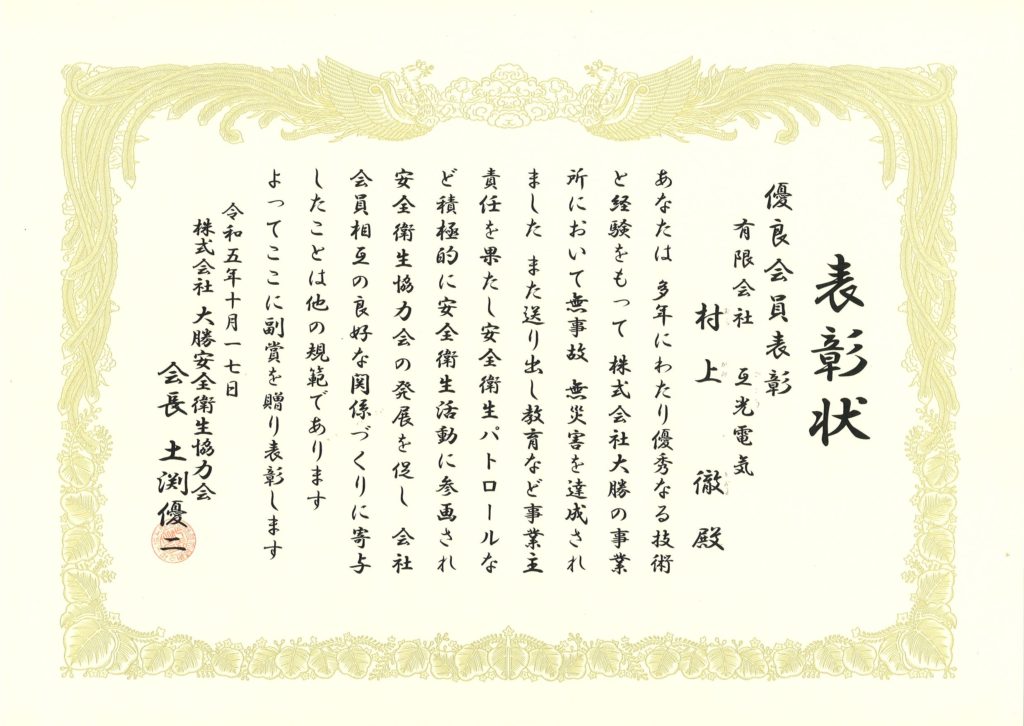 表彰状
優良会員表彰
有限会社 互光電気
村上 徹 殿
あなたは 多年にわたり優秀なる技術
と経験をもって 株式会社大勝の事業
所において無事故 無災害を達成され
ました また送り出し教育など事業主
責任を果たし安全衛生パトロールな
ど積極的に安全衛生活動に参画され
安全衛生協力会の発展を促し 会社
会員相互の良好な関係づくりに寄与
したことは他の規範であります
よってここに副賞を贈り表彰します
令和五年十月一七日
株式会社 大勝安全衛生協力会
会長 土渕優二